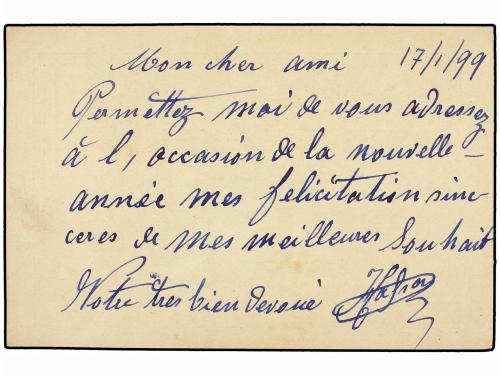 Mon cher ami 17/1/99
Permettez moi de vous adressez
à l, occasion de la nouvelle –
année mes felicitation sin-
ceres de mes meilleures Souhait
Votre tres bien devoué